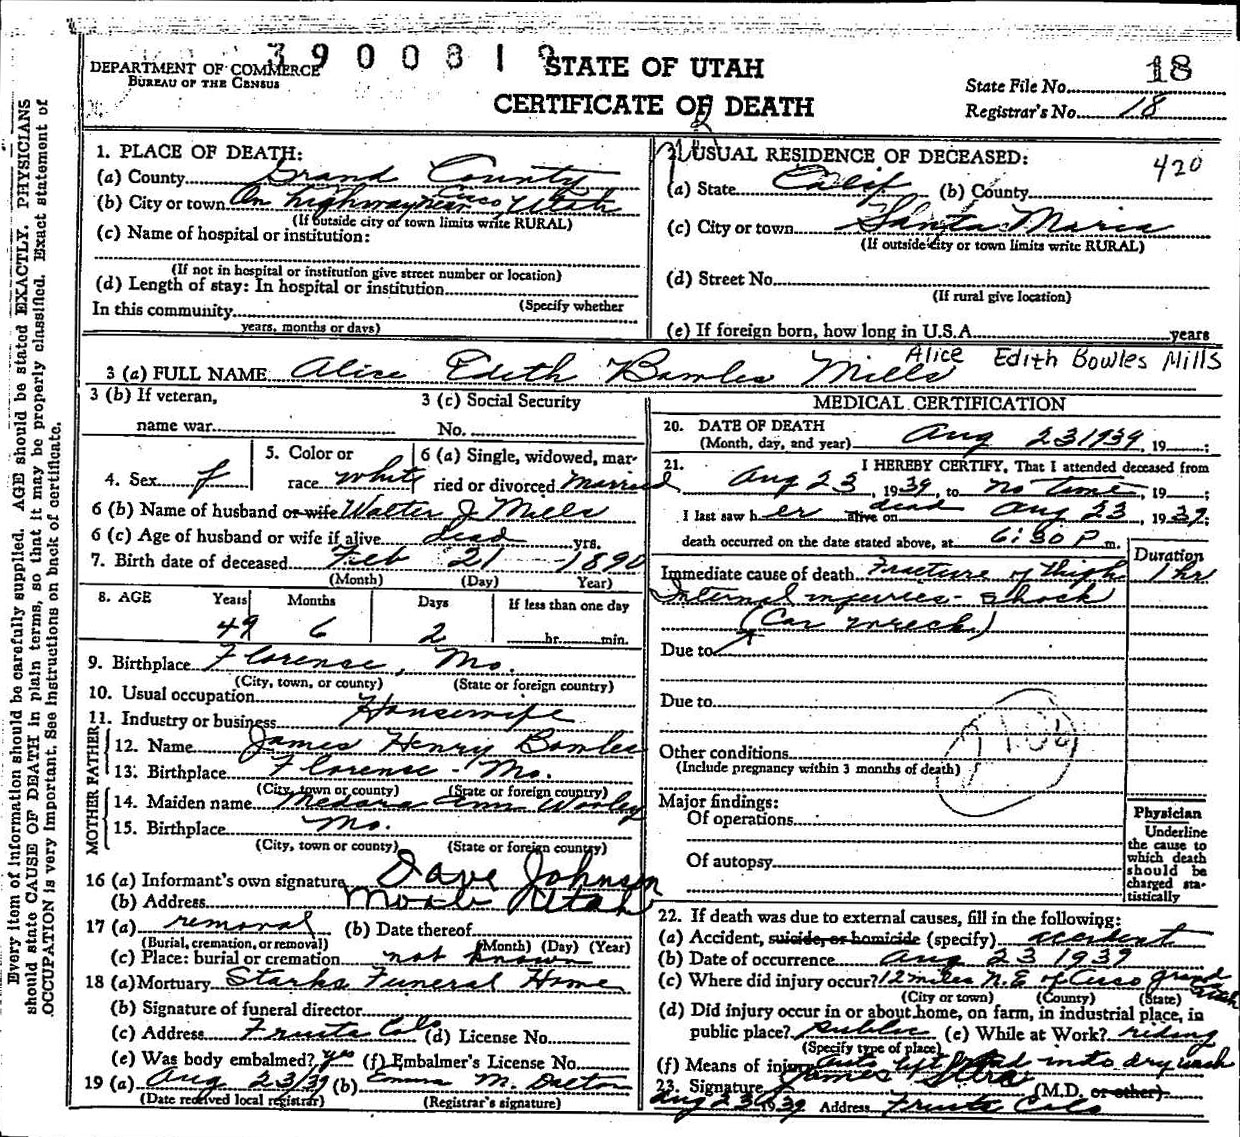 3900819
DEPARTMENT OF COMMERCE
BUREAU OF THE CENSUS
STATE OF UTAH
CERTIFICATE OF DEATH
State File No. 18
Registrar's No. 18
Every item of information should be carefully supplied. AGE should be stated EXACTLY. PHYSICIANS
should state CAUSE OF DEATH in plain terms, so that it may be properly classified. Exact statement of
OCCUPATION is very important. See instructions on back of certificate.
1. PLACE OF DEATH:
(a) County Grand County
(b) City or town On highway near Cisco, Utah
(If outside city or town limits write RURAL)
(c) Name of hospital or institution:
(If not in hospital or institution give street number or location)
(d) Length of stay: In hospital or institution
(Specify whether
In this community
years, months or days)
2. USUAL RESIDENCE OF DECEASED:
420
(a) State Calif (b) County
(c) City or town Santa Maria
(If outside city or town limits write RURAL)
(d) Street No.
(If rural give location)
(e) If foreign born, how long in U.S.A. years
3 (a) FULL NAME Alice Edith Bowles Mills
Alice Edith Bowles Mills
3 (b) If veteran,
name war
3 (c) Social Security
No.
4. Sex f
5. Color or
race white
6 (a) Single, widowed, mar-
ried or divorced Married
6 (b) Name of husband or wife Walter J Mills
6 (c) Age of husband or wife if alive dead yrs.
7. Birth date of deceased Feb 21 1890
(Month) (Day) Year)
8. AGE Years Months Days If less than one day
49 6 2 hr. min.
9. Birthplace Florence, Mo.
(City, town, or county) (State or foreign country)
10. Usual occupation Housewife
11. Industry or business
FATHER
12. Name James Henry Bowles
13. Birthplace Florence - Mo.
(City, town or county) (State or foreign country)
MOTHER
14. Maiden name Medora Ann Wooley
15. Birthplace Mo.
(City, town or county) (State or foreign country)
16 (a) Informant's own signature Dave Johnson
(b) Address Moab Utah
17 (a) removal (b) Date thereof
(Burial, cremation, or removal) (Month) (Day) (Year)
(c) Place: burial or cremation not known
18 (a) Mortuary Starks Funeral Home
(b) Signature of funeral director
(c) Address Fruita Colo (d) License No.
(e) Was body embalmed? yes (f) Embalmer's License No.
19 (a) Aug 23/39 (b) Emma M. Dalton
(Date received local registrar) (Registrar's signature)
MEDICAL CERTIFICATION
20. DATE OF DEATH
(Month, day, and year) Aug 23 1939, 19 ;
21. I HEREBY CERTIFY, That I attended deceased from
Aug 23, 1939, to no time, 19 ;
I last saw her alive on dead Aug 23, 1939;
death occurred on the date stated above, at 6:30 P m.
Duration
Immediate cause of death Fracture of thigh 1 hr
Internal injuries - shock
(Car wreck)
Due to
Due to
Other conditions
(Include pregnancy within 3 months of death)
Major findings:
Of operations
Of autopsy
Physician
Underline
the cause to
which death
should be
charged sta-
tistically
22. If death was due to external causes, fill in the following:
(a) Accident, suicide, or homicide (specify) accident
(b) Date of occurrence Aug 23 1939
(c) Where did injury occur? 12 miles N.E of Cisco Grand Utah
(City or town) (County) (State)
(d) Did injury occur in or about home, on farm, in industrial place, in
public place? public (e) While at Work? riding
(Specify type of place)
(f) Means of injury auto left road into dry wash
23. Signature James (M.D. or other)
Aug 23 1939 Address Fruita Colo